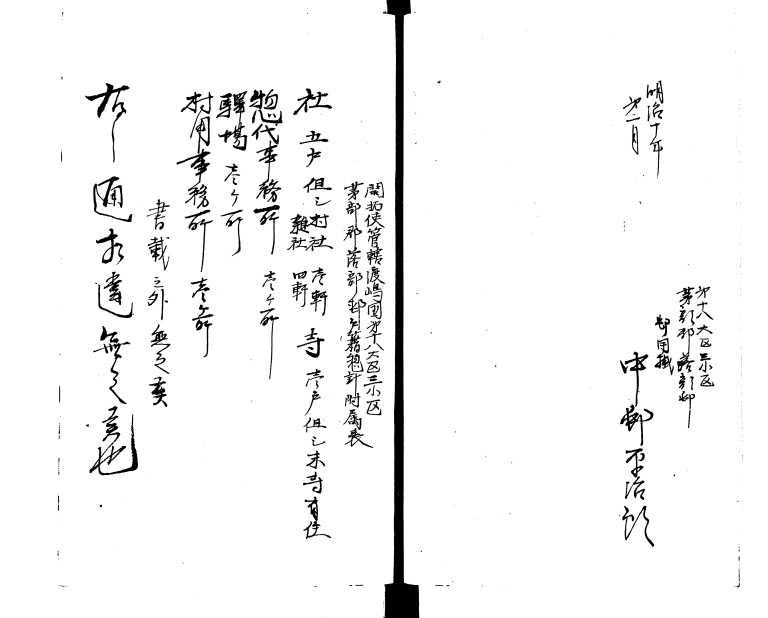 明治十年
第一月
第十八大区三小区
茅部郡落部村
村用掛
中村
開拓使管轄渡嶋国第十八大区三小区
茅部郡落部村戸籍総計附属表
社 五戸 但シ村社 壱軒
雑社 四軒
寺 壱戸 但シ末寺有住
惣代事務所 壱ケ所
駅場 壱ケ所
村用事務所 壱ケ所
書載之外無之候
右之通相違無之候也